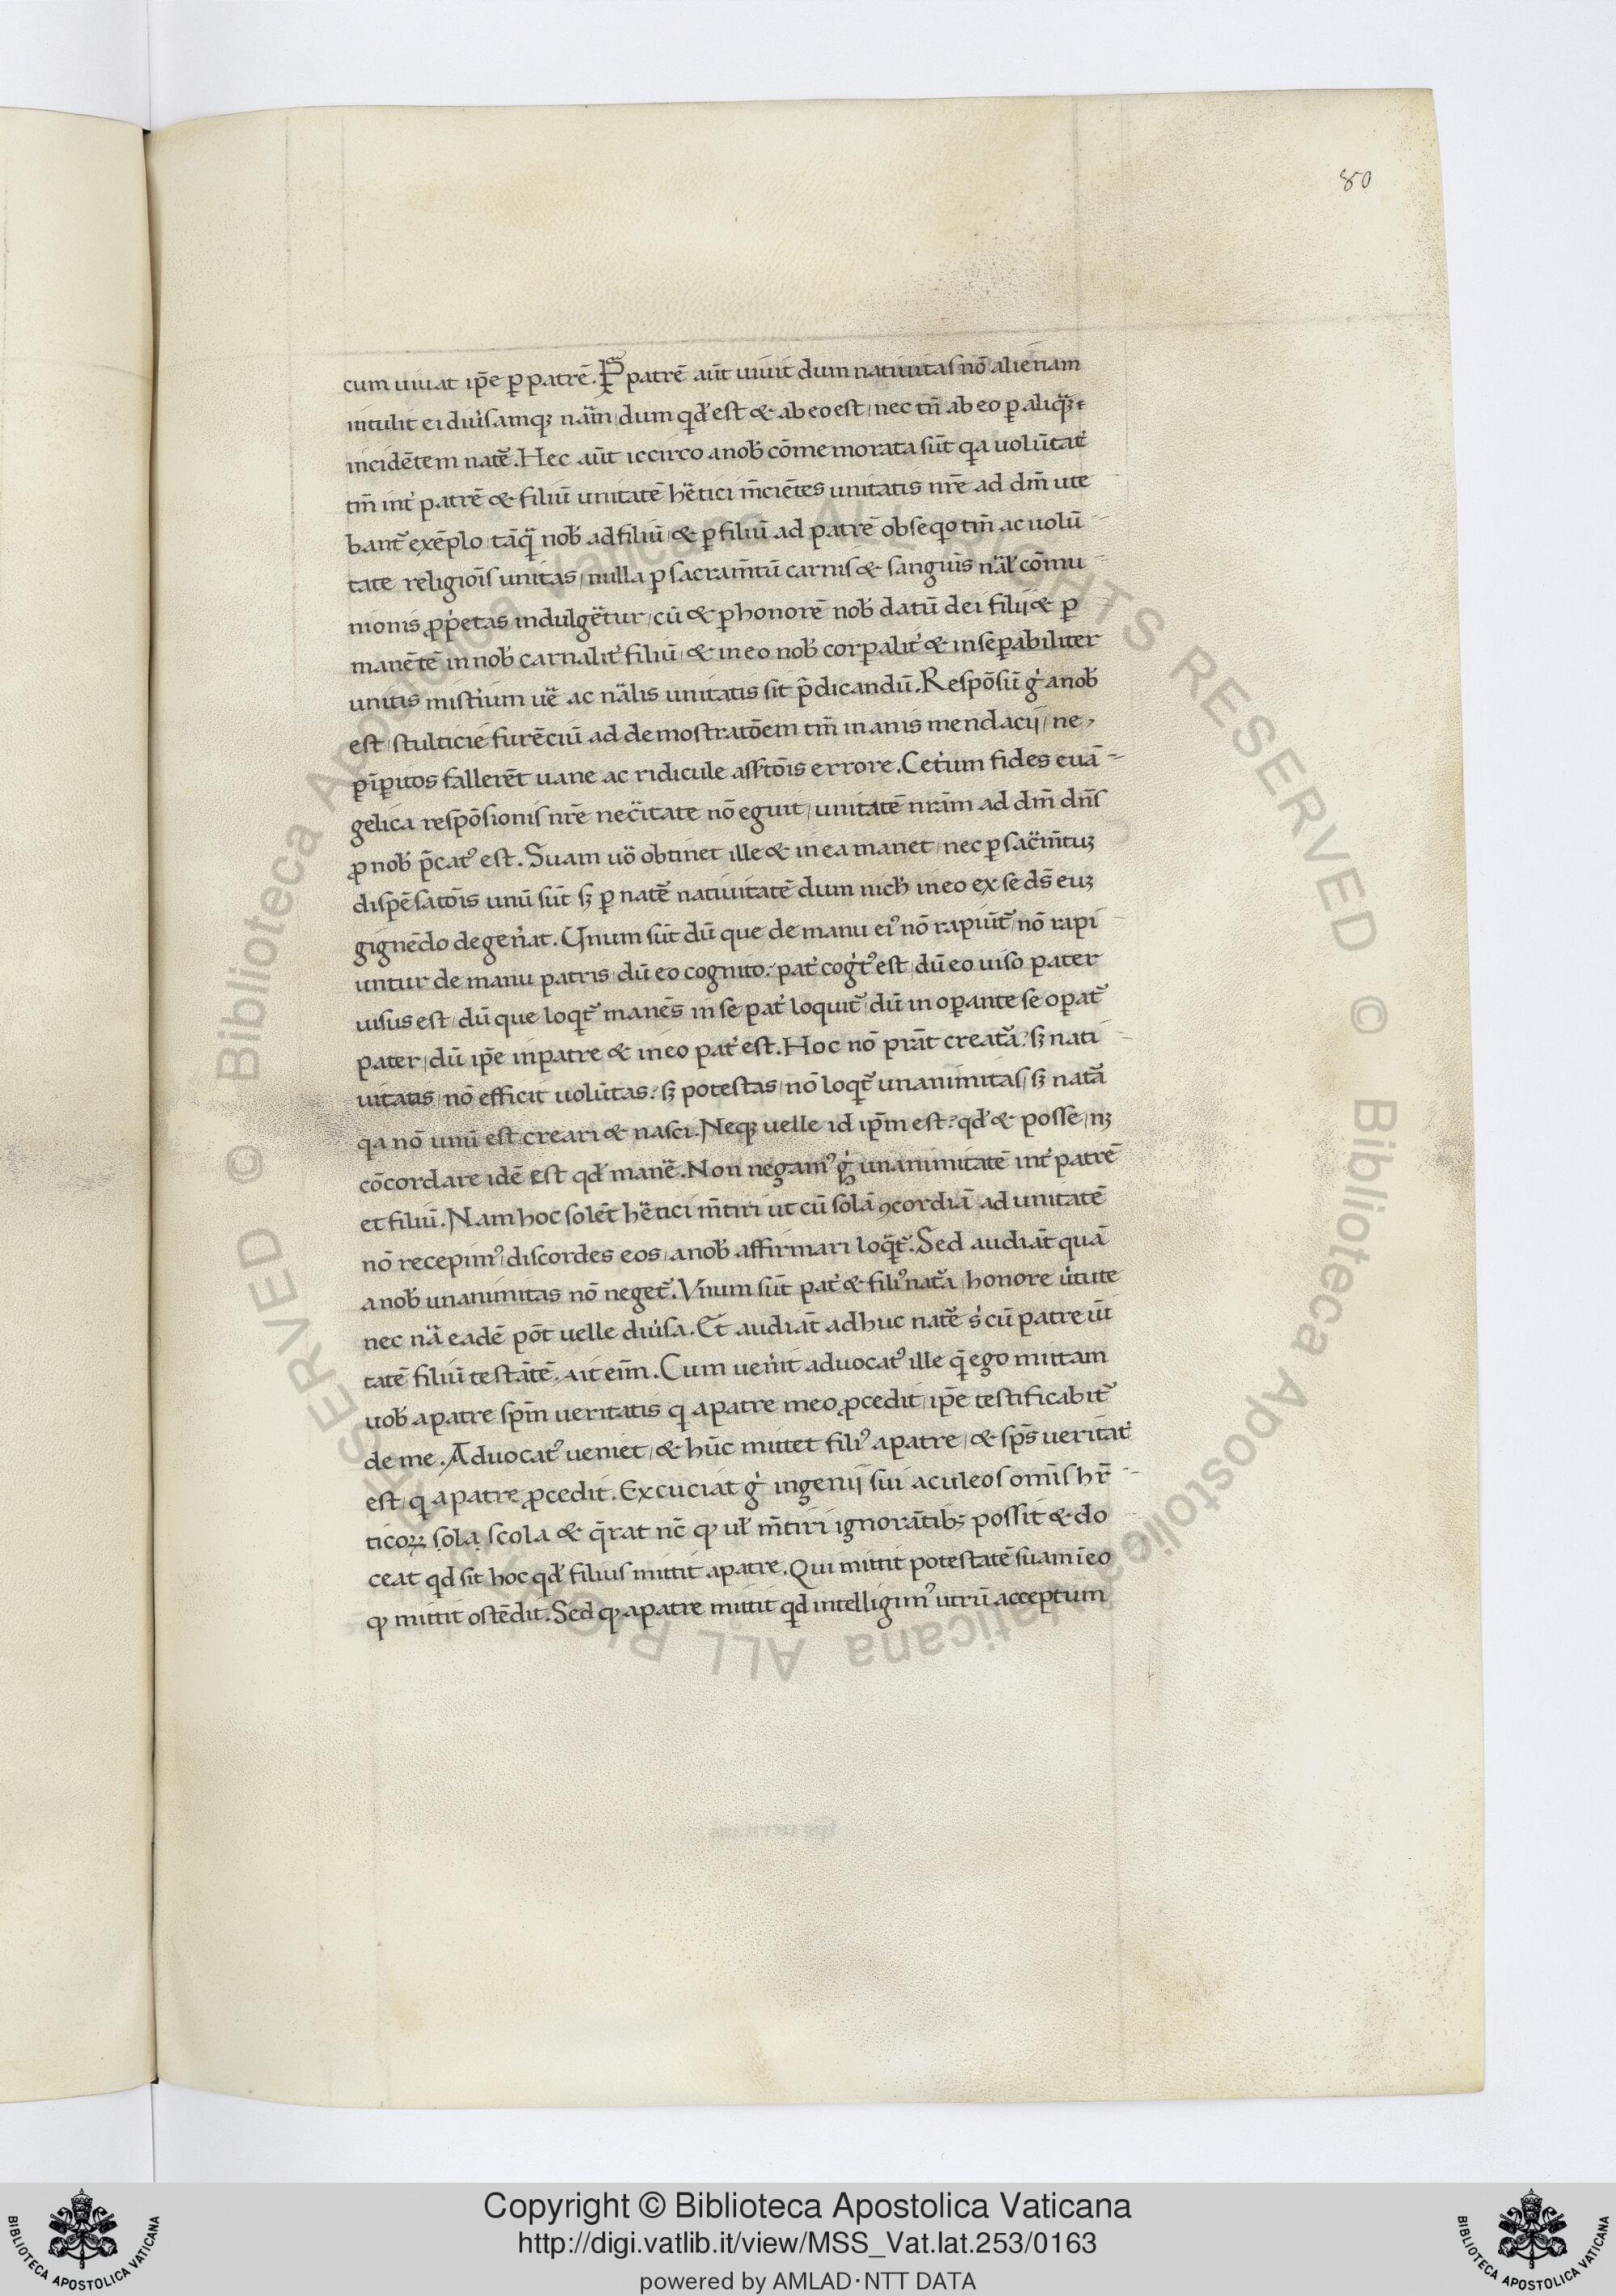 80
cum uiuat ip̄e ꝑ patrē. Ꝑ patrē aūt uiuit dum natiuitas nō alienam
intulit ei diu̓samqꝫ nāꝫ dum qd̓ est & ab eo est / nec tn̄ ab eo ꝑ
incidētem natē. Hec aūt iccirco a nob̓ cōmemorata sūt qa uolūtat̓
tm̄ int̓ patrē & filiū unitatē hetici m̄ciētes unitatis nrē ad dm̄ ute
bant᷑ exēplo / tāq̄ nob̓ ad filiū / & ꝑ filiū ad patrē obseqo tm̄ ac uolū
tate religiois̄ unitas / nulla ꝑ sacram̄tū carnis & sanguis̄ nal̓ cōmu
nionis ꝓp̓etas indulget᷑ur / cū & ꝑ honorē nob̓ datū dei filij & ꝑ
manētē in nob̓ carnalit̓ filiū / & in eo nob̓ corꝑalit̓ & inseꝑabiliter
unitis mist̓ium ue᷑ ac nal̄is unitatis sit p̄dicandū. Respōsū g̓ a nob̓
est / stulticie furēciū ad demostratōem tm̄ inanis mendacij / ne
ꝑip̄itos fallerēt uane ac ridicule asstōis errore. Cet̓um fides euā
gelica respōsionis nrē necitate nō eguit / unitatē nrām ad dm̄ dn̄s
ꝓ nob̓ p̄cat᷒ est. Suam uo᷑ obtinet ille & in ea manet / nec ꝑ sacm̄tuꝫ
dispēsatōis unū sūt sꝫ ꝑ natē natiuitatē dum nich̓ in eo ex se ds̄ euꝫ
gignēdo degen̓at. Unum sūt dū que de manu ei᷒ nō rapiūt᷑ / nō rapi
untur de manu patris / dū eo cognito. pat̓ cog̓t᷒ est / dū eo uiso pater
uisus est / dū que loqt᷑ manēs in se pat̓ loquit᷑ / dū in oꝑante se oꝑat᷑
pater / dū ip̄e in patre & in eo pat̓ est. Hoc nō prāt creatā. sꝫ nati
uitatis / nō efficit uolūtas. sꝫ potestas / nō loqt᷑ unanimitas / sꝫ natā
qa nō unū est creari & nasci. Neqꝫ uelle id ip̄m est. qd̓ & posse / nꝫ
cōcordare idē est qd̓ mane᷑. Non negam᷒ g̓ unanimitatē int̓ patrē
et filiū. Nam hoc solēt hetici m̄tiri ut cū solā ꝯcordiā ad unitatē
nō recepim᷒ / discordes eos / a nob̓ affirmari loqt᷑. Sed audiāt quā
a nob̓ unanimitas nō neget᷑. Vnum sūt pat̓ & fili᷒ natā / honore u̓tute
nec nā eadē pōt uelle diu̓sa. Et audiāt adhuc natē s̓ cū patre ūi
tatē filiū testātē. Ait eīm. Cum uen̓it aduocat᷒ ille q̄ ego mittam
uob̓ a patre spm̄ ueritatis q a patre meo ꝓcedit / ip̄e testificabit᷑
de me. Aduocat᷒ ueniet / & hūc mittet fili᷒ a patre / & sps̄ ueritat̓
est / q a patre ꝓcedit. Excuciat g̓ ingenij sui aculeos omīs hr̄
ticoꝝ sola scola & q̄rat nc̄ qꝫ ul̓ m̄tiri ignorātibꝫ possit & do
ceat qd̓ sit hoc qd̓ filius mittit a patre. Qui mittit potestatē suam ī eo
qꝫ mittit ostēdit. Sed qꝫ a patre mittit qd̓ intelligim᷒ utrū acceptum
© Biblioteca Apostolica Vaticana ALL RIGHTS RESERVED © Biblioteca Apostolica Vaticana ALL RIGHTS RESERVED
Copyright © Biblioteca Apostolica Vaticana
http://digi.vatlib.it/view/MSS_Vat.lat.253/0163
powered by AMLAD·NTT DATA
BIBLIOTECA APOSTOLICA VATICANA
BIBLIOTECA APOSTOLICA VATICANA